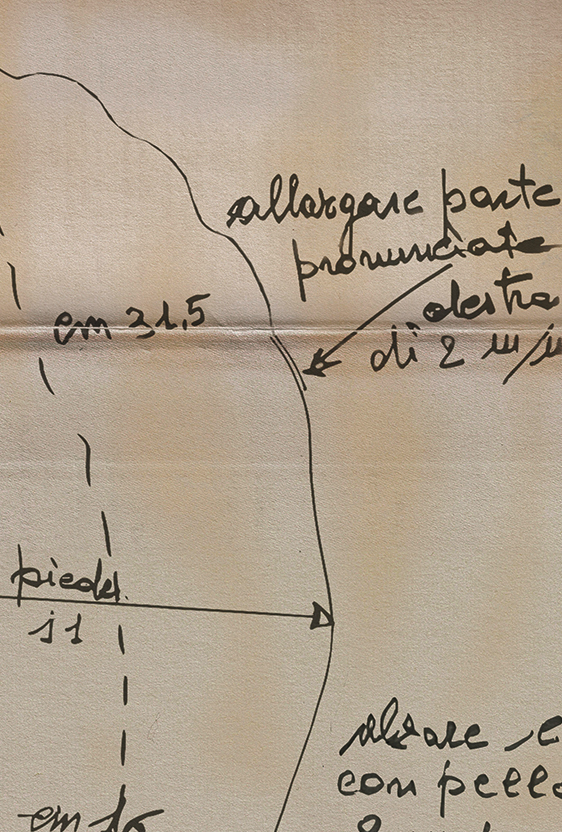 allargare parte
pronunciate
destra
di 2 m/m
cm 31,5
piede
11
alzare
con pelle
cm 16